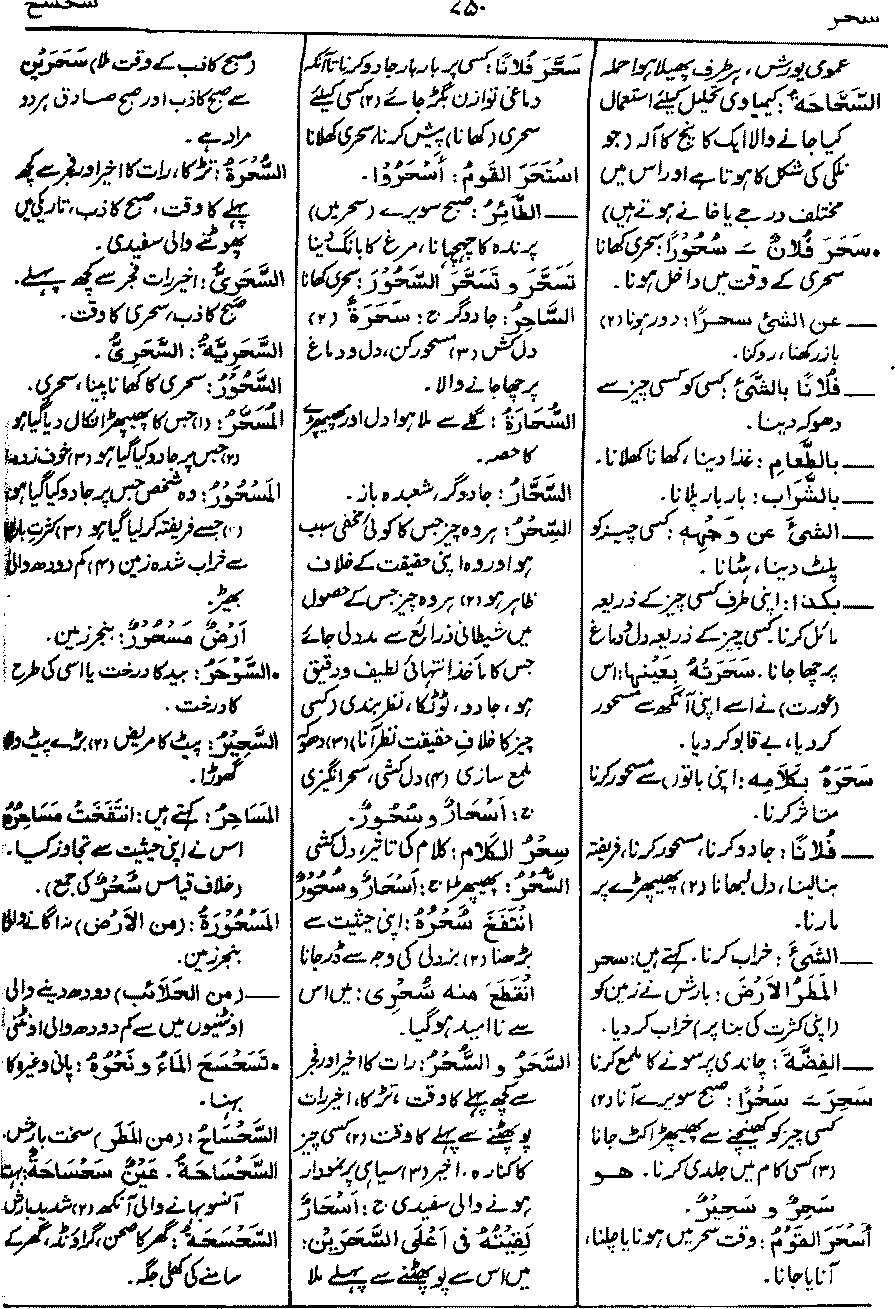 سحر
۷۵۰
سحسح
عمومی یورش، ہر طرف پھیلا ہوا حملہ
السَّحَّاحَةُ: کیمیاوی تحلیل کیلئے استعمال
کیا جانے والا ایک کانچ کا آلہ (جو
نلکی کی شکل کا ہوتا ہے اور اس میں
مختلف درجے یا خانے ہوتے ہیں)
•سَحَرَ فُلَانٌ ـَ سُحُورًا: سحری کھانا
سحری کے وقت میں داخل ہونا۔
— عن الشئ سحرًا: دور ہونا (۲)
باز رکھنا، روکنا۔
— فُلَانًا بالشَّئ: کسی کو کسی چیز سے
دھوکہ دینا۔
— بالطَّعَامِ: غذا دینا، کھانا کھلانا۔
— بالشَّرَاب: بار بار پلانا۔
— الشئَ عن وَجْهِه: کسی چیز کو
پلٹ دینا، ہٹانا۔
— بکذا: اپنی طرف کسی چیز کے ذریعہ
مائل کرنا کسی چیز کے ذریعہ دل و دماغ
پر چھا جانا۔ سَحَرَتْهُ بِعَيْنِها: اس
(عورت) نے اسے اپنی آنکھ سے مسحور
کر دیا، بے قابو کر دیا۔
سَحَرَهُ بِكَلَامِه: اپنی باتوں سے مسحور کرنا
متاثر کرنا۔
— فُلَانًا: جادو کرنا، مسحور کرنا، فریفتہ
بنا لینا، دل لبھانا (۲) پھیپھڑے پر
مارنا۔
— الشَّئَ: خراب کرنا۔ کہتے ہیں: سحر
المَطَرُ الاَرْضَ: بارش نے زمین کو
(اپنی کثرت کی بنا پر) خراب کر دیا۔
— الفِضَّةَ: چاندی پر سونے کا ملمع کرنا
سَحِرَ ـَ سَحَرًا: صبح سویرے آنا (۲)
کسی چیز کو کھینچنے سے پھیپھڑا کٹ جانا
(۳) کسی کام میں جلدی کرنا۔ هو
سَحِرٌ و سَحِیْرٌ۔
أَسْحَرَ القَوْمُ: وقت سحر میں ہونا یا چلنا،
آنا یا جانا۔
سَحَّرَ فُلَانًا: کسی پر بار بار جادو کرنا تا آنکہ
دماغی توازن بگڑ جائے (۲) کسی کیلئے
سحری (کھانا) پیش کرنا، سحری کھلانا
اسْتَحَرَ القَوْمُ: أَسْحَرُوْا۔
— الطَّائِرُ: صبح سویرے (سحر میں)
پرندہ کا چہچہانا، مرغ کا بانگ دینا
تَسَحَّرَ و تَسَحَّرَ السَّحُوْرَ: سحری کھانا
السَّاحِرُ: جادوگر ج: سَحَرَةٌ (۲)
دل کش (۳) مسحور کن، دل و دماغ
پر چھا جانے والا۔
السُّحَارَةُ: گلے سے ملا ہوا دل اور پھیپھڑے
کا حصہ۔
السَّحَّارُ: جادوگر، شعبدہ باز۔
السِّحْرُ: ہر وہ چیز جس کا کوئی مخفی سبب
ہو اور وہ اپنی حقیقت کے خلاف
ظاہر ہو (۲) ہر وہ چیز جس کے حصول
میں شیطانی ذرائع سے مدد لی جائے
جس کا مأخذ انتہائی لطیف و دقیق
ہو، جادو، ٹوٹکا، نظر بندی (کسی
چیز کا خلافِ حقیقت نظر آنا) (۳) دھوکہ
ملمع سازی (۴) دل کشی، سحر انگیزی
ج: أَسْحَارٌ و سُحُورٌ۔
سِحْرُ الکَلَام: کلام کی تاثیر، دل کشی
السَّحْرُ: پھیپھڑا ج: أَسْحَارٌ و سُحُورٌ
انْتَفَخَ سَحْرُهُ: اپنی حیثیت سے
بڑھنا (۲) بزدلی کی وجہ سے ڈر جانا
انْقَطَعَ منه سَحْرِی: میں اس
سے نا امید ہو گیا۔
السَّحَرُ و السَّحْرُ: رات کا اخیر اور فجر
سے کچھ پہلے کا وقت، تڑکا، اخیر رات
پو پھٹنے سے پہلے کا وقت (۲) کسی چیز
کا کنارہ۔ اخیر (۳) سیاہی پر نمودار
ہونے والی سفیدی ج: أَسْحَارٌ
لَقِيْتُهُ فی أَعْلَی السَّحَرَیْنِ:
میں اس سے پو پھٹنے سے پہلے ملا
(صبح کاذب کے وقت ملا) سَحَرَیْنِ
سے صبح کاذب اور صبح صادق ہر دو
مراد ہے۔
السُّحْرَةُ: تڑکا، رات کا اخیر اور فجر سے کچھ
پہلے کا وقت، صبح کاذب، تاریکی میں
پھوٹنے والی سفیدی۔
السَّحَرِیُّ: اخیر رات فجر سے کچھ پہلے۔
صبح کاذب، سحری کا وقت۔
السَّحَرِیَّةُ: السَّحَرِیُّ۔
السَّحُوْرُ: سحری کا کھانا پینا، سحری۔
المُسَحَّرُ: (۱) جس کا پھیپھڑا نکال دیا گیا ہو
(۲) جس پر جادو کیا گیا ہو (۳) خوف زدہ
المَسْحُوْرُ: وہ شخص جس پر جادو کیا گیا ہو
(۲) جسے فریفتہ کر لیا گیا ہو (۳) کثرت بارش
سے خراب شدہ زمین (۴) کم دودھ والی
بھیڑ۔
أَرْضٌ مَسْحُوْرٌ: بنجر زمین۔
•السَّوْحَرُ: بید کا درخت یا اسی کی طرح
کا درخت۔
السَّحِیْرُ: پیٹ کا مریض (۲) بڑے پیٹ والا
گھوڑا۔
المَسَاحِرُ: کہتے ہیں: انْتَفَخَتْ مَسَاحِرُهُ
اس نے اپنی حیثیت سے تجاوز کیا۔
(خلاف قیاس سَحْرٌ کی جمع)۔
المَسْحُوْرَةُ: (من الاَرْضِ) نہ اگانے والی
بنجر زمین۔
— (من الحَلَائب) دودھ دینے والی
اونٹنیوں میں سے کم دودھ والی اونٹنی
•تَسَحْسَحَ المَاءُ و نَحْوُهُ: پانی وغیرہ کا
بہنا۔
السَّحْسَاحُ: (من المَطَرِ) سخت بارش۔
السَّحْسَاحَةُ۔ عَیْنٌ سَحْسَاحَةٌ: بہت
آنسو بہانے والی آنکھ (۲) شدید بارش
السَّحْسَحَةُ: گھر کا صحن، گراؤنڈ، گھر کے
سامنے کی کھلی جگہ۔